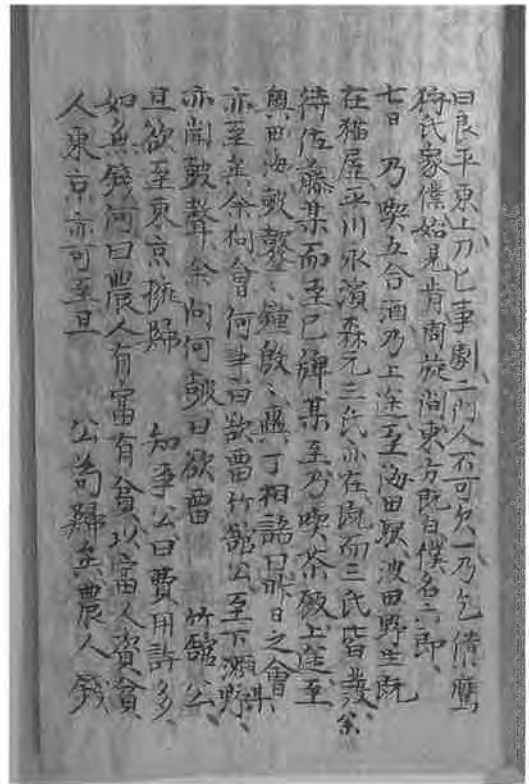 曰良平東上乃七事劇二門人不可欠一乃乞借鷹
待氏家僕始見肯周旋間東方既白僕名六郎、
七日 乃喫五合酒乃上途、至海田駅波田野生既
在猫屋平川永濱森元三氏亦在、既而三氏皆発、余
待佐藤某而至已牌某至乃喫茶飯上途、至
奥西海鼓聲、鐘殷、興丁相語曰昨日之會
亦至矣余問會何事曰欲留竹館公、至下瀬野、
亦聞鼓聲余問何鼓曰欲留 竹館公、
且欲至東京擁歸 知事公曰費用許多、
如無錢何曰農人有富有貧、以富人資貧
人東京亦可至且 公苟歸矣農人錢